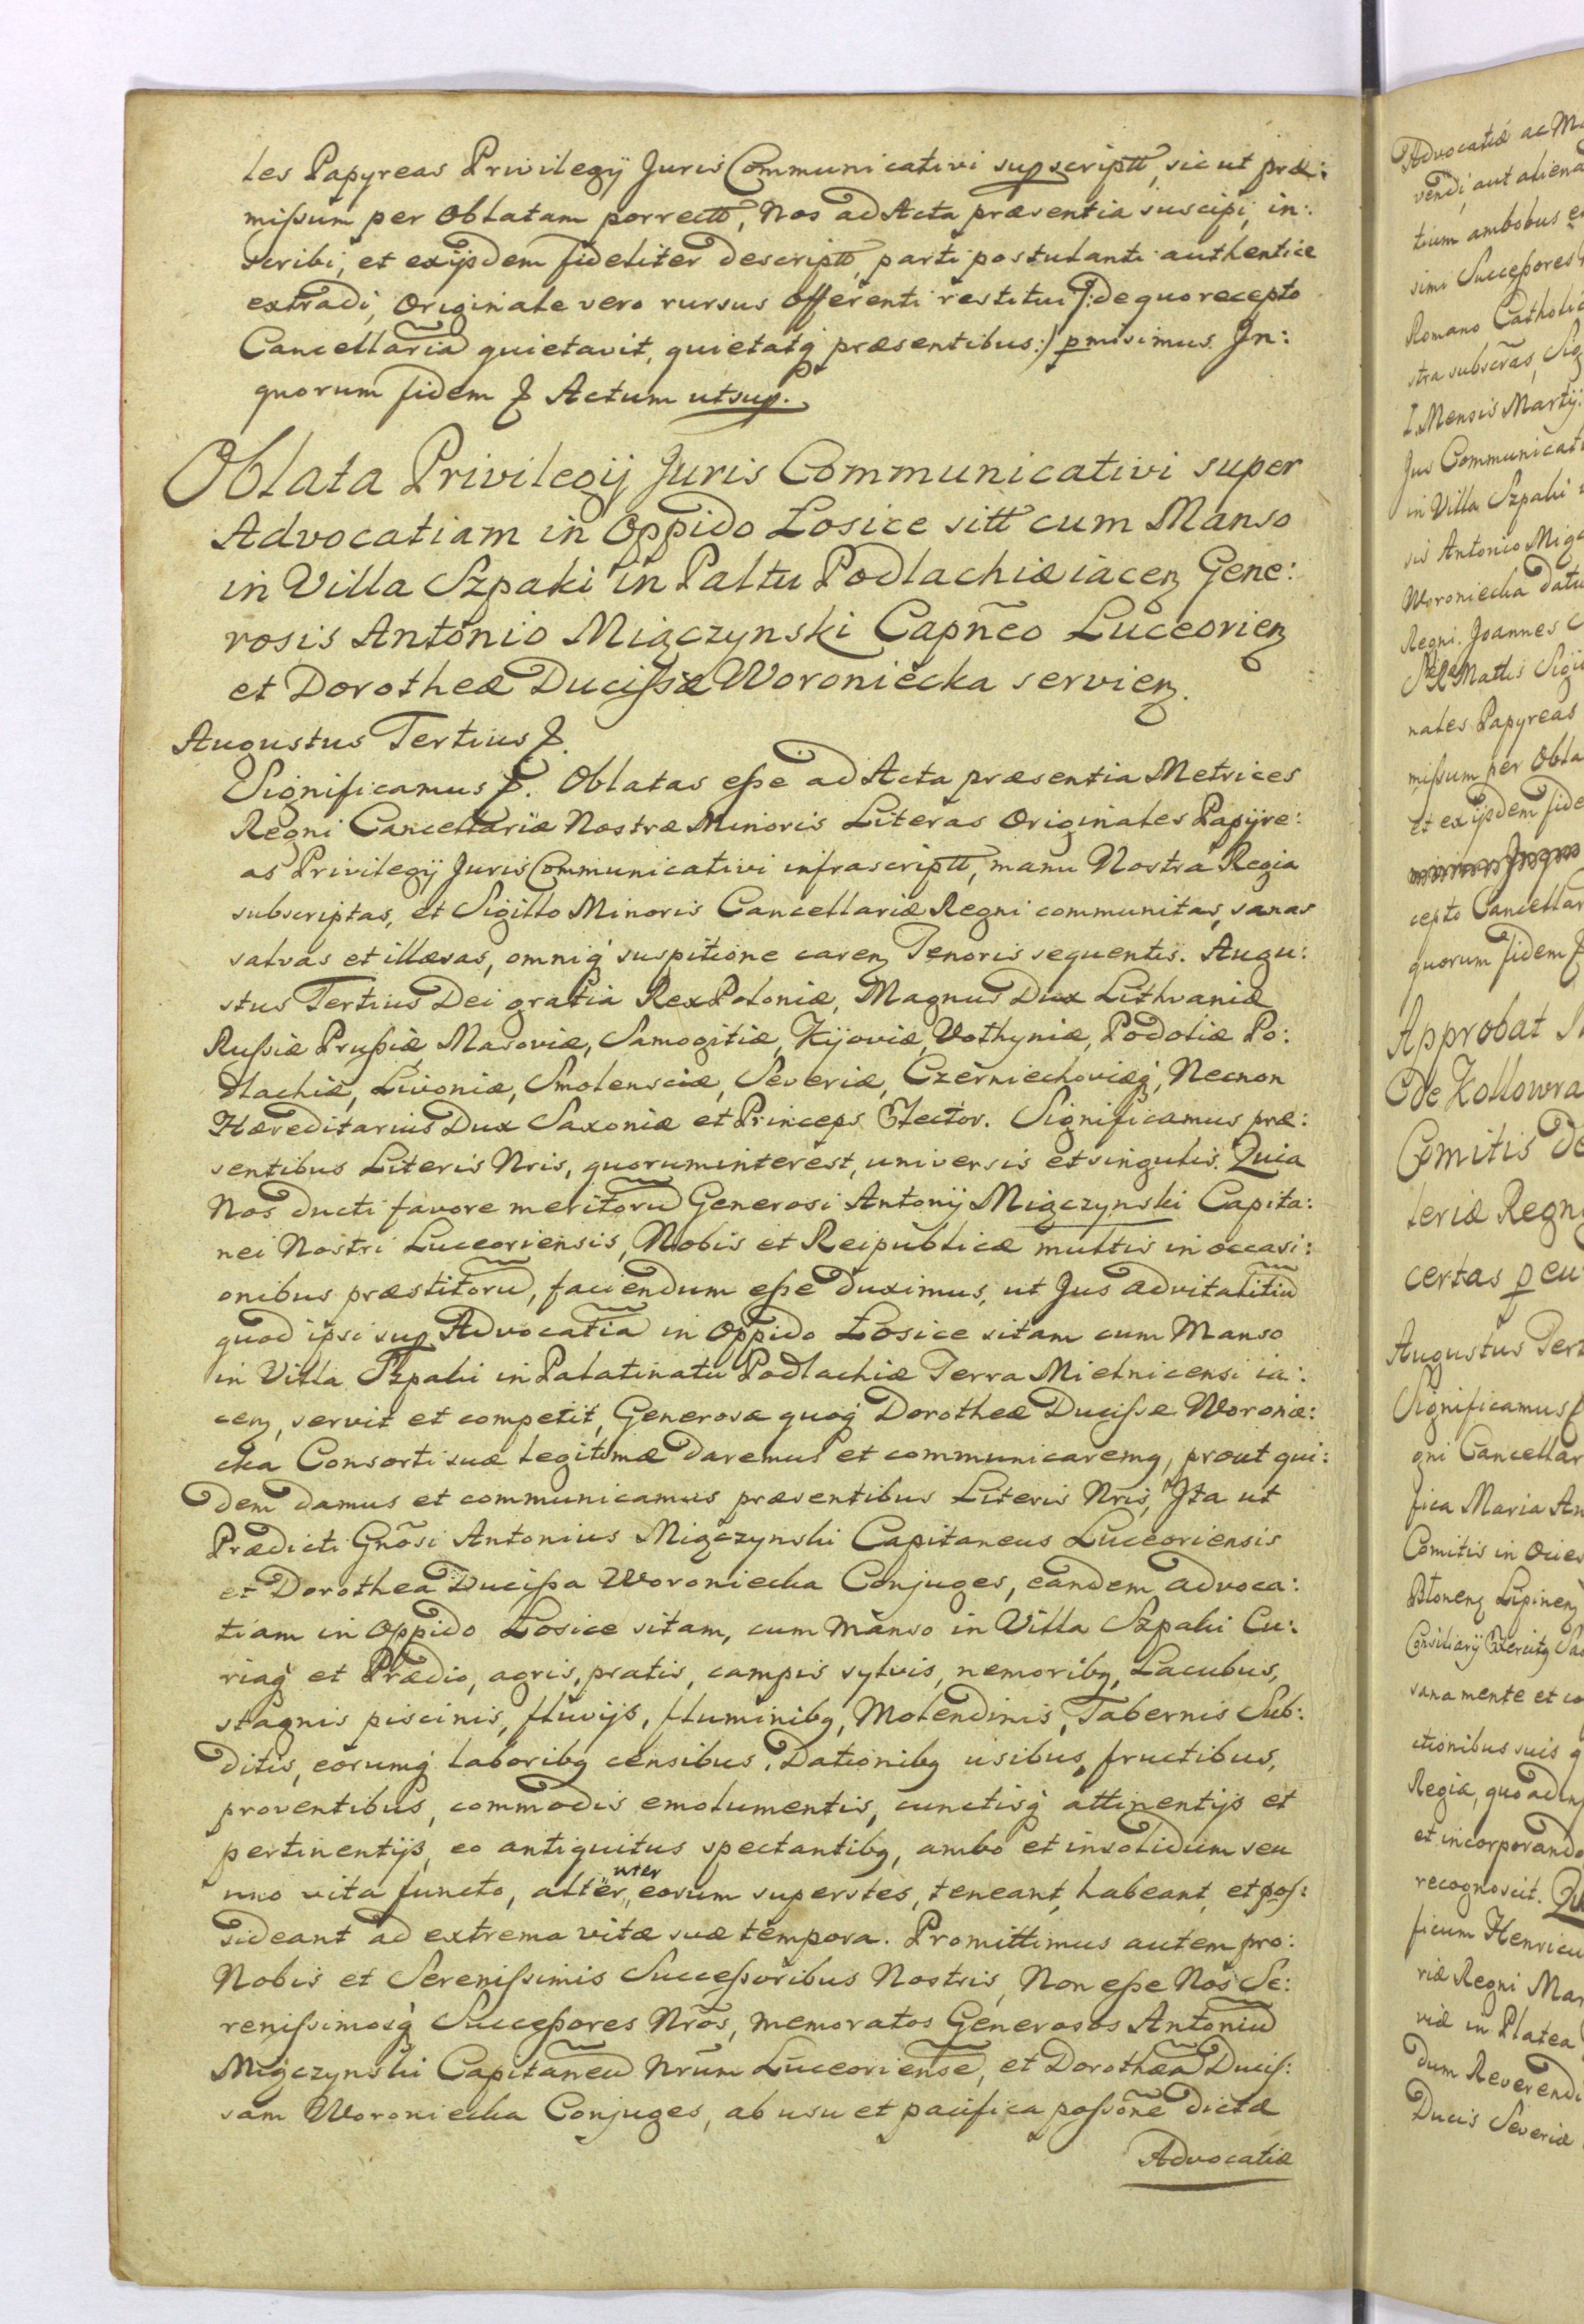 les Papyreas Privilegÿ Juris Communicativi supscriptt, sic ut præ:
missum per Oblatam porrectt, Nos ad Acta præsentia suscipi, in:
scribi, et exijsdem fideliter descriptt, parti postulanti authentice
extradi, Originale vero rursus offerenti restitui /: de quo recepto
Cancellariã quietavit, quietatq præsentibus :/ pmisimus. In:
quorum fidem & Actum utsup.
Oblata Privilegij Juris Communicativi super
Advocatiam in Oppido Łosice sitt cum Manso
in Villa Szpaki in Paltu Podlachiæ iacen Gene:
rosis Antonio Miączynski Capñeo Luceorien
et Dorotheæ Ducissæ Woroniecka servien.
Augustus Tertius &.
Significamus &. Oblatas esse ad Acta præsentia Metrices
Regni Cancellariæ Nostræ Minoris Literas Originales Papÿre:
as Privilegÿ Juris Communicativi infrascriptt, manu Nostra Regia
subscriptas, et Sigillo Minoris Cancellariæ Regni communitas, sanas
salvas et illæsas, omniq suspitione caren Tenoris sequentis. Augu:
stus Tertius Dei gratia Rex Poloniæ, Magnus Dux Lithvaniæ
Russiæ Prussiæ, Masoviæ, Samogitiæ, Kijoviæ, Volhyniæ, Podoliæ Po:
dlachiæ, Livoniæ, Smolensciæ, Severiæ, Czerniechoviæq, Necnon
Hæreditarius Dux Saxoniæ et Princeps Elector. Significamus præ:
sentibus Literis Nris, quorum interest, universis et singulis. Quia
Nos ducti favore meritorũ Generosi Antonij Miączynski Capita:
nei Nostri Luceoriensis, Nobis et Reipublicæ multis in occasi:
onibus præstitorũ, faciendum esse duximus, ut Jus advitalitiũ
quod ipsi sup Advocatiã in Oppido Łosice sitam cum Manso
in Villa Szpaki in Palatinatu Podlachiæ Terra Mielnicensi ia:
cen, servit et competit, Generosæ quoq Dorotheæ Ducissæ Woronie:
cka Consorti suæ legitimæ daremus et communicaremq, prout qui:
dem damus et communicamus præsentibus Literis Nris, Ita ut
Prædicti Gnõsi Antonius Miączynski Capitaneus Luceoriensis
et Dorothea Ducissa Woroniecka Conjuges, eandem advoca:
tiam in Oppido Łosice sitam, cum Manso in Villa Szpaki Cu:
riaq et Prædio, agris, pratis, campis sylvis, nemoribq, Lacubus,
stagnis piscinis, fluvijs, fluminibq, Molendinis, Tabernis Sub:
ditis, eorumq laboribq censibus, Dationibq usibus, fructibus,
proventibus, commodis emolumentis, cunctisq attinentijs et
pertinentijs, eo antiquitus spectantibq, ambo et insolidum seu
uno vita functo, alter uter eorum superstes, teneant, habeant, et pos:
sideant ad extrema vitæ suæ tempora. Promittimus autem pro:
Nobis et Serenissimis Successoribus Nostris, Non esse Nos Se:
renissimosq Successores Nrõs, memoratos Generosos Antoniũ
Miączynski Capitaneũ Nrũm Luceoriensẽ, et Dorotheã Ducis:
sam Woroniecka Conjuges, ab usu et pacifica possõne dictæ
Advocatiæ
Advocatiæ ac Ma
vendi, aut aliena
tium ambobus e
simi Successores
Romano Catholic
stra subscras, Sig
I. Mensis Martÿ.
Jus Communicati
in Villa Szpaki
sis Antonio Miąc
Woroniecka datu
Regni. Joannes C
nales Papyreas
missum per Obla
et exijsdem fide
cepto Cancellar
quorum fidem &
Approbat
de Kollowra
Comitis de
leriæ Regni
certas p eu
Augustus Tert
Significamus &
gni Cancellar
fica Maria An
Comitis in Ocies
Błonen Lipinen
Consiliarÿ Exercitq Sa
sana mente et co
ctionibus suis q
Regia, quo ad in
et incorporando
recognoscit. Qu
ficum Henricu
riæ Regni Mar
viæ in Platea
dum Reverendi
Ducis Severiæ